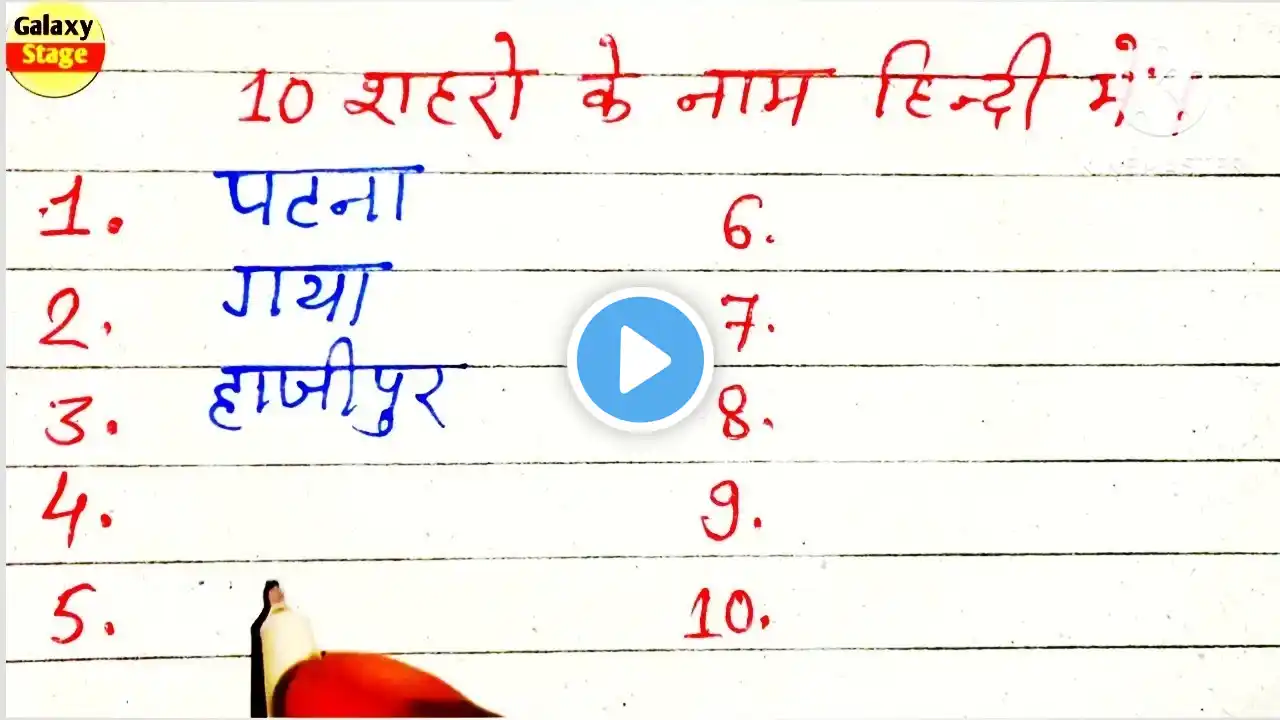 Galaxy
Stage
10 शहरो के नाम हिन्दी में
1. पटना
2. गया
3. हाजीपुर
4.
5.
6.
7.
8.
9.
10.